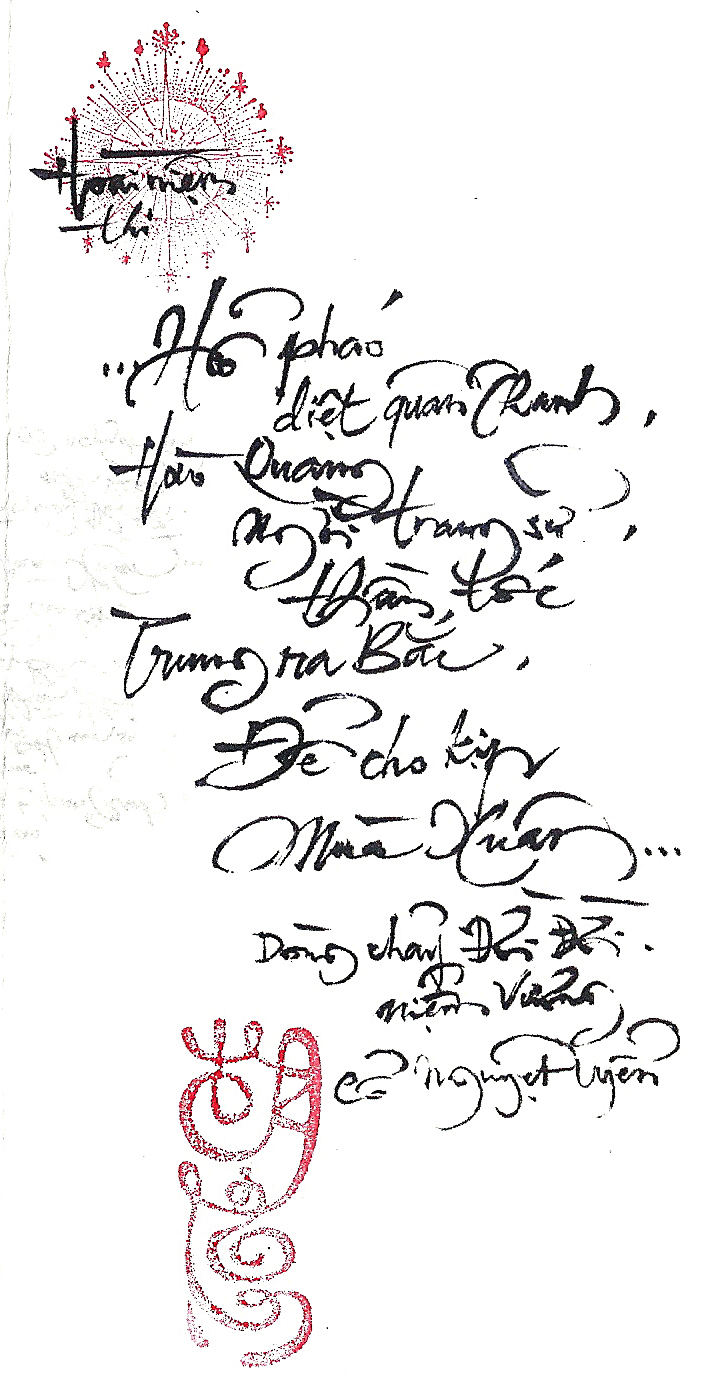 Hoài niệm
thi
...Hỏa pháo
diệt quân Thanh,
Hào Quang
ngời trang sử,
thần tốc
Trung ra Bắc,
Để cho kịp
Mùa Xuân...
Dòng chảy
niệm
cổ nguyệt Uyển